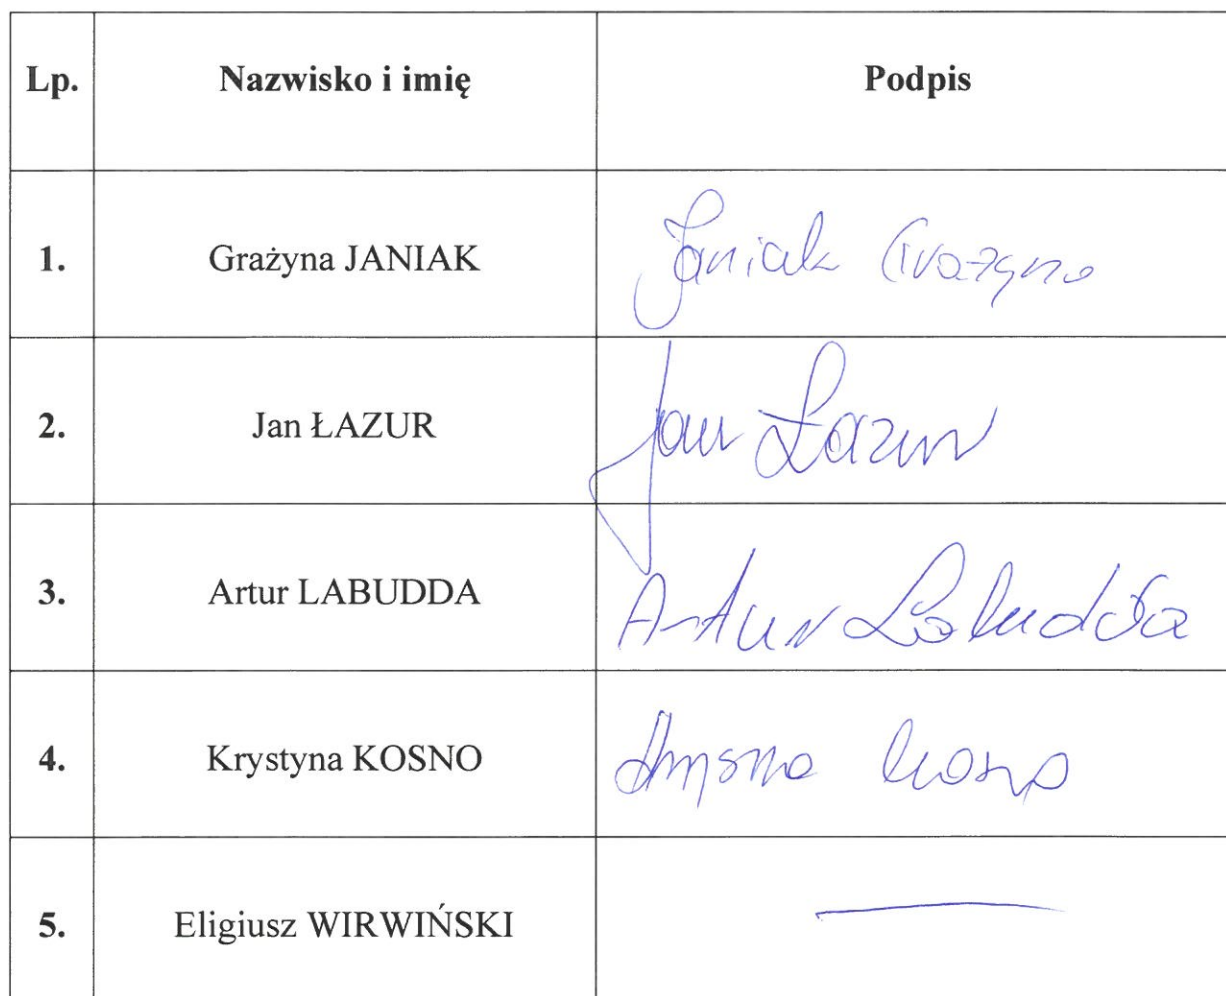 Lp. Nazwisko i imię Podpis
1. Grażyna JANIAK Janiak Grażyna
2. Jan ŁAZUR Jan Łazur
3. Artur LABUDDA Artur Labudda
4. Krystyna KOSNO Krystyna Kosno
5. Eligiusz WIRWIŃSKI